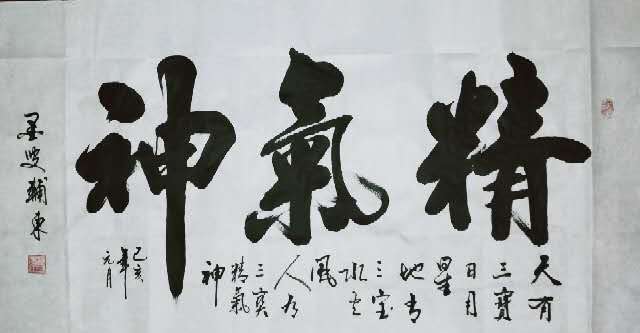 精氣神
天有
三寶
日月
星
地有
三宝
水火
風
人有
三宝
精氣
神
己亥
年
元月
墨叟輔東